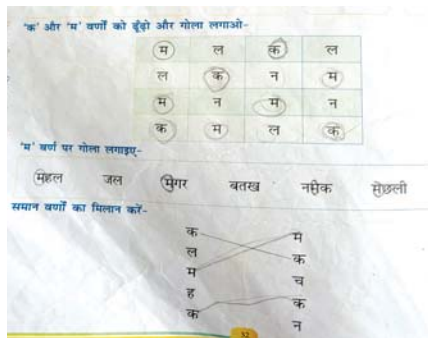 'क' और 'म' वर्णों को ढूँढ़ो और गोला लगाओ-
म ल क ल
ल क न म
म न म न
क म ल क
'म' वर्ण पर गोला लगाइए-
महल जल मगर बतख नमक मछली
समान वर्णों का मिलान करें-
क म
ल क
म च
ह क
क न
52